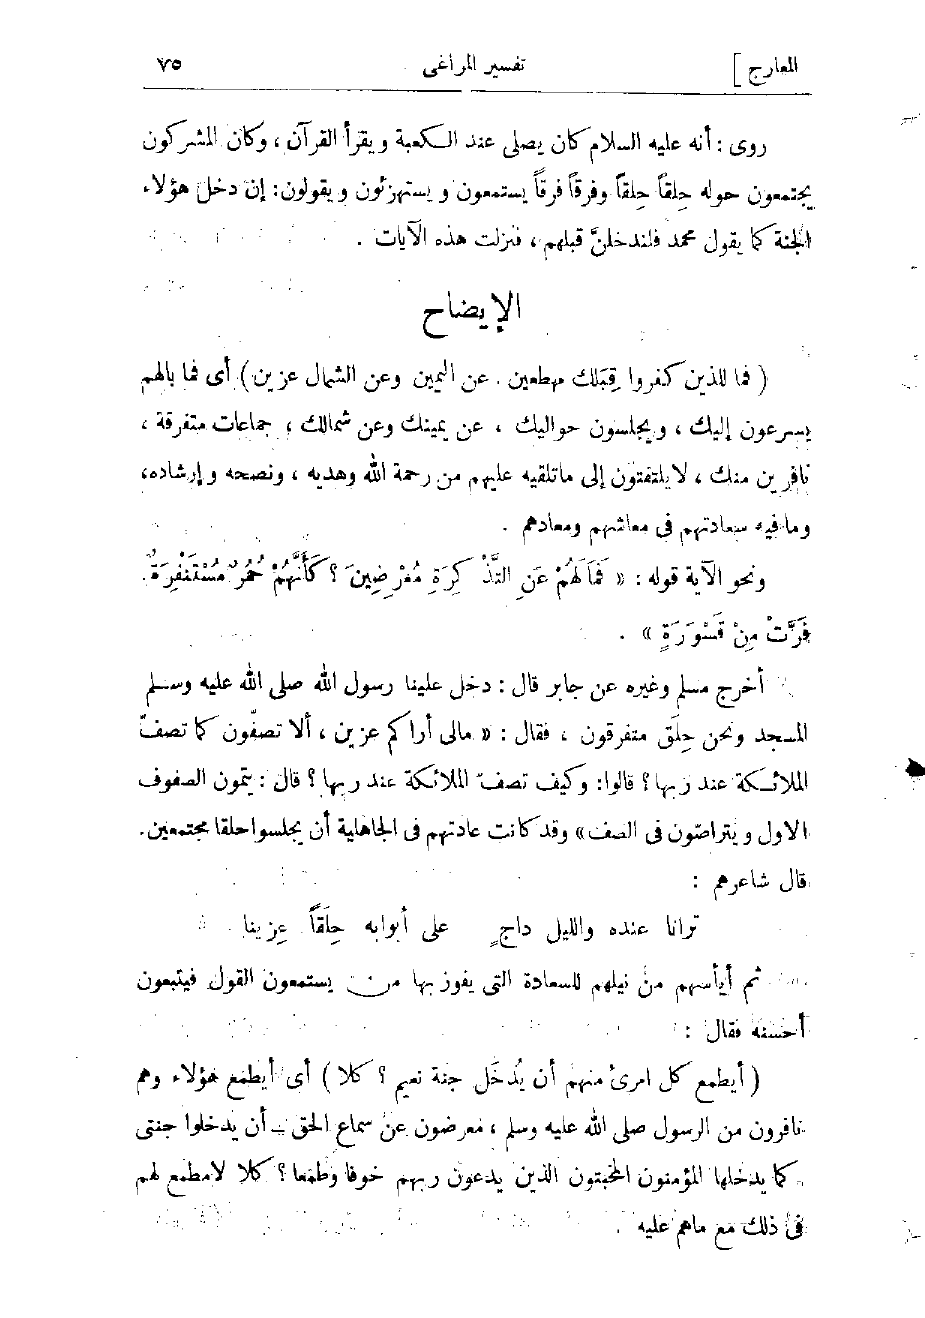 المعارج ]
تفسير المراغى
٧٥
روى : أنه عليه السلام كان يصلى عند الكعبة ويقرأ القرآن ، وكان المشركون
يجتمعون حوله حِلقاً حِلقاً وفرقاً فرقاً يستمعون ويستهزئون ويقولون: إن دخل هؤلاء
الجنة كما يقول محمد فلندخلنَّ قبلهم ، فنزلت هذه الآيات .
الإيضاح
( فما للذين كفروا قِبَلك مهطعين . عن اليمين وعن الشمال عزين ) أى فما بالهم
يسرعون إليك ، ويجلسون حواليك ، عن يمينك وعن شمالك ، جماعات متفرقة ،
نافرين منك ، لا يلتفتون إلى ماتلقيه عليهم من رحمة الله وهديه ، ونصحه وإرشاده،
وما فيه سعادتهم فى معاشهم ومعادهم .
ونحو الآية قوله : « فَمَا لَهُمْ عَنِ التَّذْكِرَةِ مُعْرِضِينَ ؟ كَأَنَّهُمْ حُمُرٌ مُسْتَنْفِرَةٌ.
فَرَّتْ مِنْ قَسْوَرَةٍ » .
أخرج مسلم وغيره عن جابر قال : دخل علينا رسول الله صلى الله عليه وسلم
المسجد ونحن حِلَق متفرقون ، فقال : « مالى أراكم عزين ، ألا تصفّون كما تصفّ
الملائكة عند ربها ؟ قالوا: وكيف تصفّ الملائكة عند ربها ؟ قال : يتمون الصفوف
الاول ويتراصّون فى الصف » وقد كانت عادتهم فى الجاهلية أن يجلسوا حلقا مجتمعين.
قال شاعرهم :
ترانا عنده والليل داجٍ على أبوابه حِلَقاً عِزينا
ثم أيأسهم من نيلهم للسعادة التى يفوز بها من يستمعون القول فيتبعون
أحسنه فقال :
( أيطمع كل امرئ منهم أن يُدخَل جنة نعيم ؟ كلا ) أى أيطمع هؤلاء وهم
نافرون من الرسول صلى الله عليه وسلم ، معرضون عن سماع الحق ــ أن يدخلوا جنتى
كما يدخلها المؤمنون المخبتون الذين يدعون ربهم خوفا وطمعا ؟ كلا لامطمع لهم
فى ذلك مع ماهم عليه .